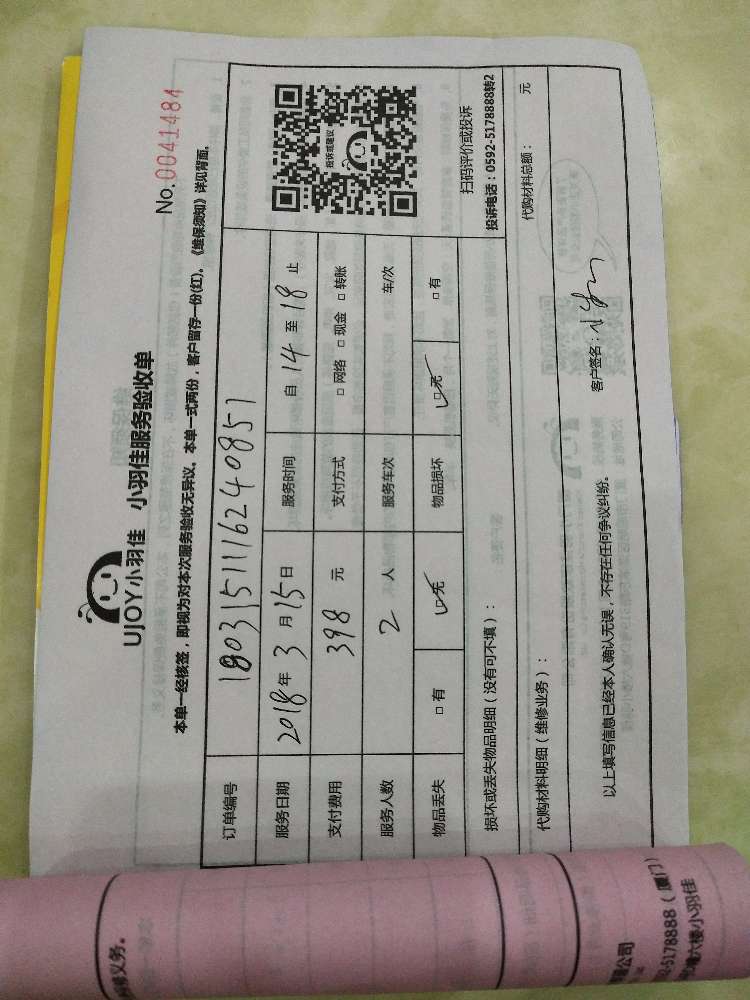 UJOY小羽佳 小羽佳服务验收单
No.0041484
本单一经核签，即视为对本次服务验收无异议。本单一式两份，客户留存一份(红)。《维保须知》详见背面。
订单编号 180315111624085)
服务日期 2018年3月15日 服务时间 自14至18止
支付费用 398元 支付方式 □网络 □现金 □转账
服务人数 2人 服务车次 车/次
物品丢失 □有 ☑无 物品损坏 ☑无 □有
投诉或建议
扫码评价或投诉
投诉电话：0592-5178888转2
损坏或丢失物品明细（没有可不填）：
代购材料明细（维修业务）：
代购材料总额： 元
以上填写信息已经本人确认无误，不存在任何争议纠纷。
客户签名：
修义务。
公司
-5178888（厦门）
六楼小羽佳